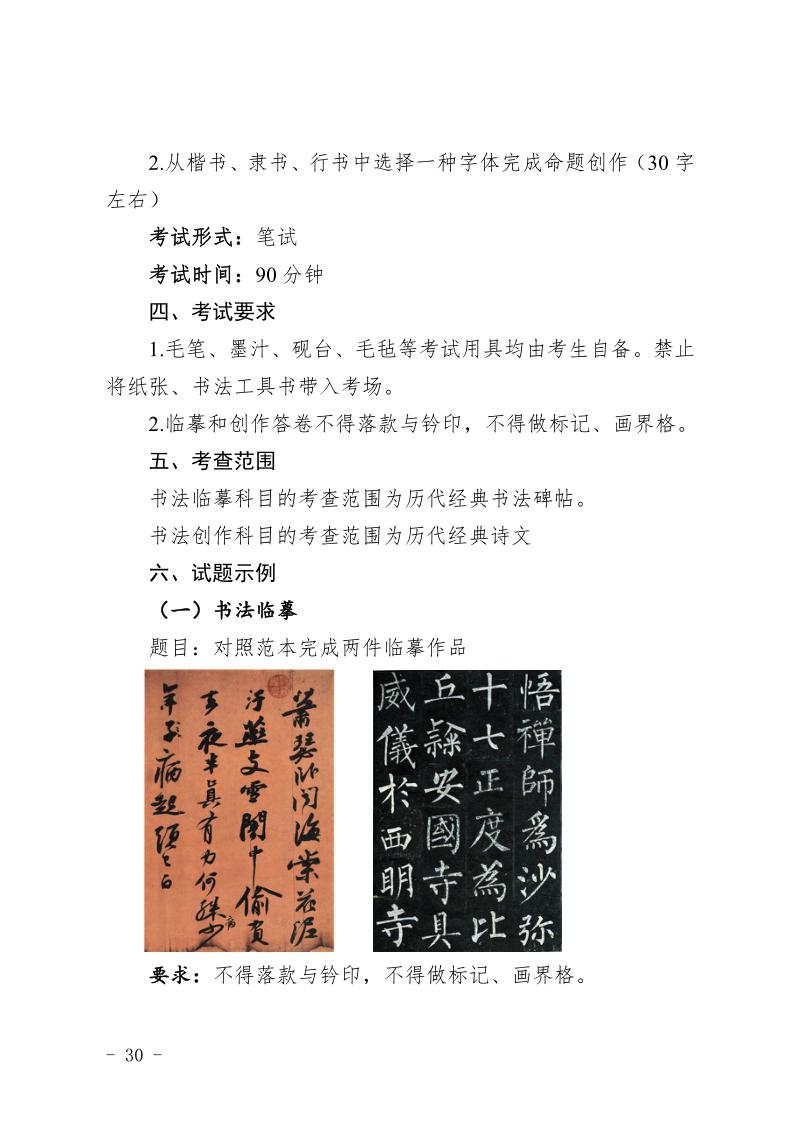 2.从楷书、隶书、行书中选择一种字体完成命题创作（30 字
左右）
考试形式：笔试
考试时间：90 分钟
四、考试要求
1.毛笔、墨汁、砚台、毛毡等考试用具均由考生自备。禁止
将纸张、书法工具书带入考场。
2.临摹和创作答卷不得落款与钤印，不得做标记、画界格。
五、考查范围
书法临摹科目的考查范围为历代经典书法碑帖。
书法创作科目的考查范围为历代经典诗文
六、试题示例
（一）书法临摹
题目：对照范本完成两件临摹作品
萧瑟卧闻海棠花泥
汙燕支雪闇中偷負
去夜半真有力何殊少病
年子病起須已白
悟禪師為沙弥
十七正度為比
丘隸安國寺具
威儀於西明寺
要求：不得落款与钤印，不得做标记、画界格。
- 30 -